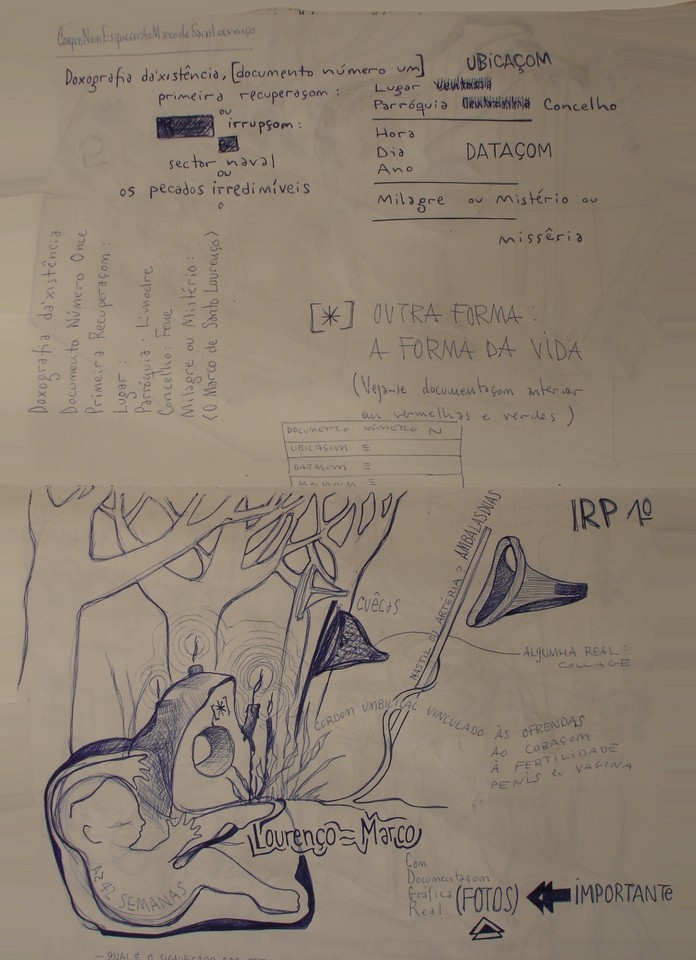 Doxografia da'xistência, [documento número um]
primeira recuperaçom:
ou
irrupçom:
ou
sector naval
ou
os pecados irredimíveis
o
UBiCAÇOM
Lugar
Parróquia Concelho
Hora
Dia DATAÇOM
Ano
Milagre ou Mistério ou
missêria
Doxografia da'xistência
Documento Número Once
Primeira Recuperaçom:
Lugar:
Parróquia:
Concelho: Fene
Milagre ou Mistério:
(O Marco de Santo Lourenço)
[*] OUTRA FORMA:
A FORMA DA VIDA
(Veja-se documentaçom anterior
em vermelhas e verdes)
DOCUMENTO NÚMERO N
UBICAÇOM =
DATAÇOM =
IRP 1º
CUÊCAS
MASTIL OU ARTÉRIA? AMBALASDUAS
ALGUMHA REAL:
COLLAGE
CORDOM UMBILICAL VINCULADO ÀS OFRENDAS
AO CORAÇOM
À FERTILIDADE
PENIS & VAGINA
[*]
Lourenço = Marco
42 SEMANAS
Com
Documentaçom
Gráfica
Real (FOTOS) IMPORTANTE
— QUAL É O SIGNIFICADO